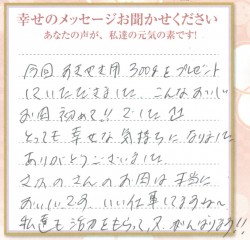 幸せのメッセージお聞かせください
あなたの声が、私達の元気の素です!
今回 すきやき用 300gをプレゼント
していただきました。こんなおいしい
お肉 初めて!! でした
とっても 幸せな 気持ちに なりました
ありがとうございました。
さんの お肉は 本当に
おいしいです。いい仕事してますね〜
私達も 活力をもらって、又、がんばります!!